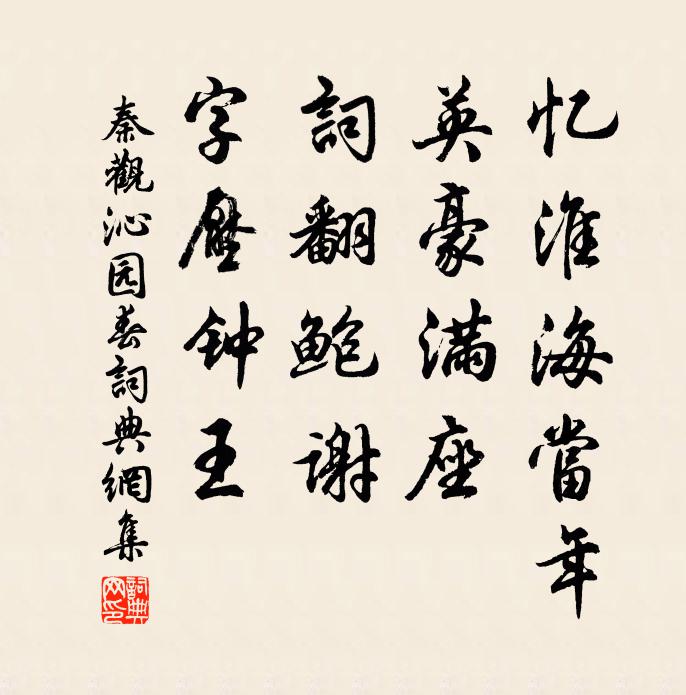 忆淮海當年
英豪满座
詞翻鲍谢
字壓钟王
秦觀沁园春詞典網集
詞典网印